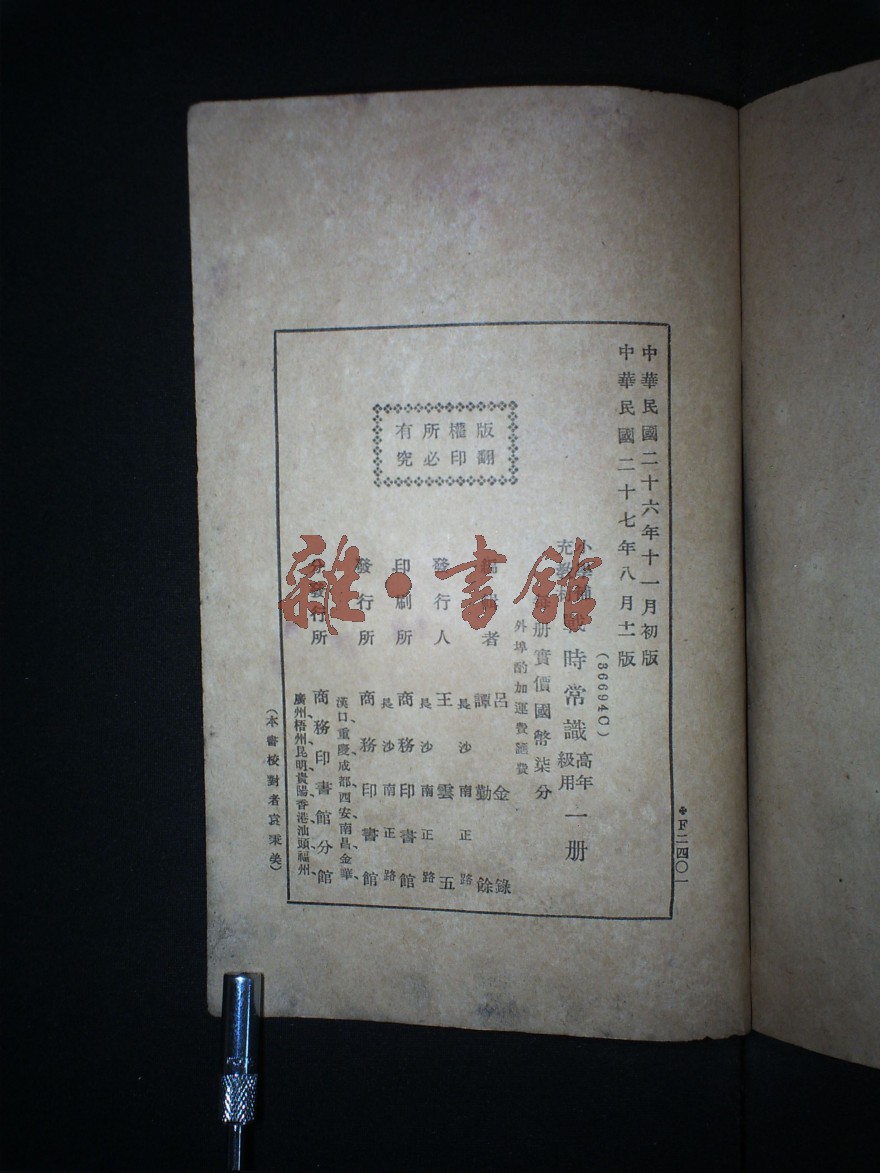 中華民國二十六年十一月初版
中華民國二十七年八月十二版
(36694C)
小學補
充教材
戰時常識
高年
級用
一册
每册實價國幣柒分
外埠酌加運費匯費
版權所有
翻印必究
編輯者
呂金錄
譚勤餘
發行人
長沙南正路
王雲五
印刷所
長沙南正路
商務印書館
發行所
商務印書館
分發行所
漢口、重慶、成都、西安、南昌、金華、
商務印書館分館
廣州、梧州、昆明、貴陽、香港、汕頭、福州、
(本書校對者袁秉美)
F二四〇一
雜·書館